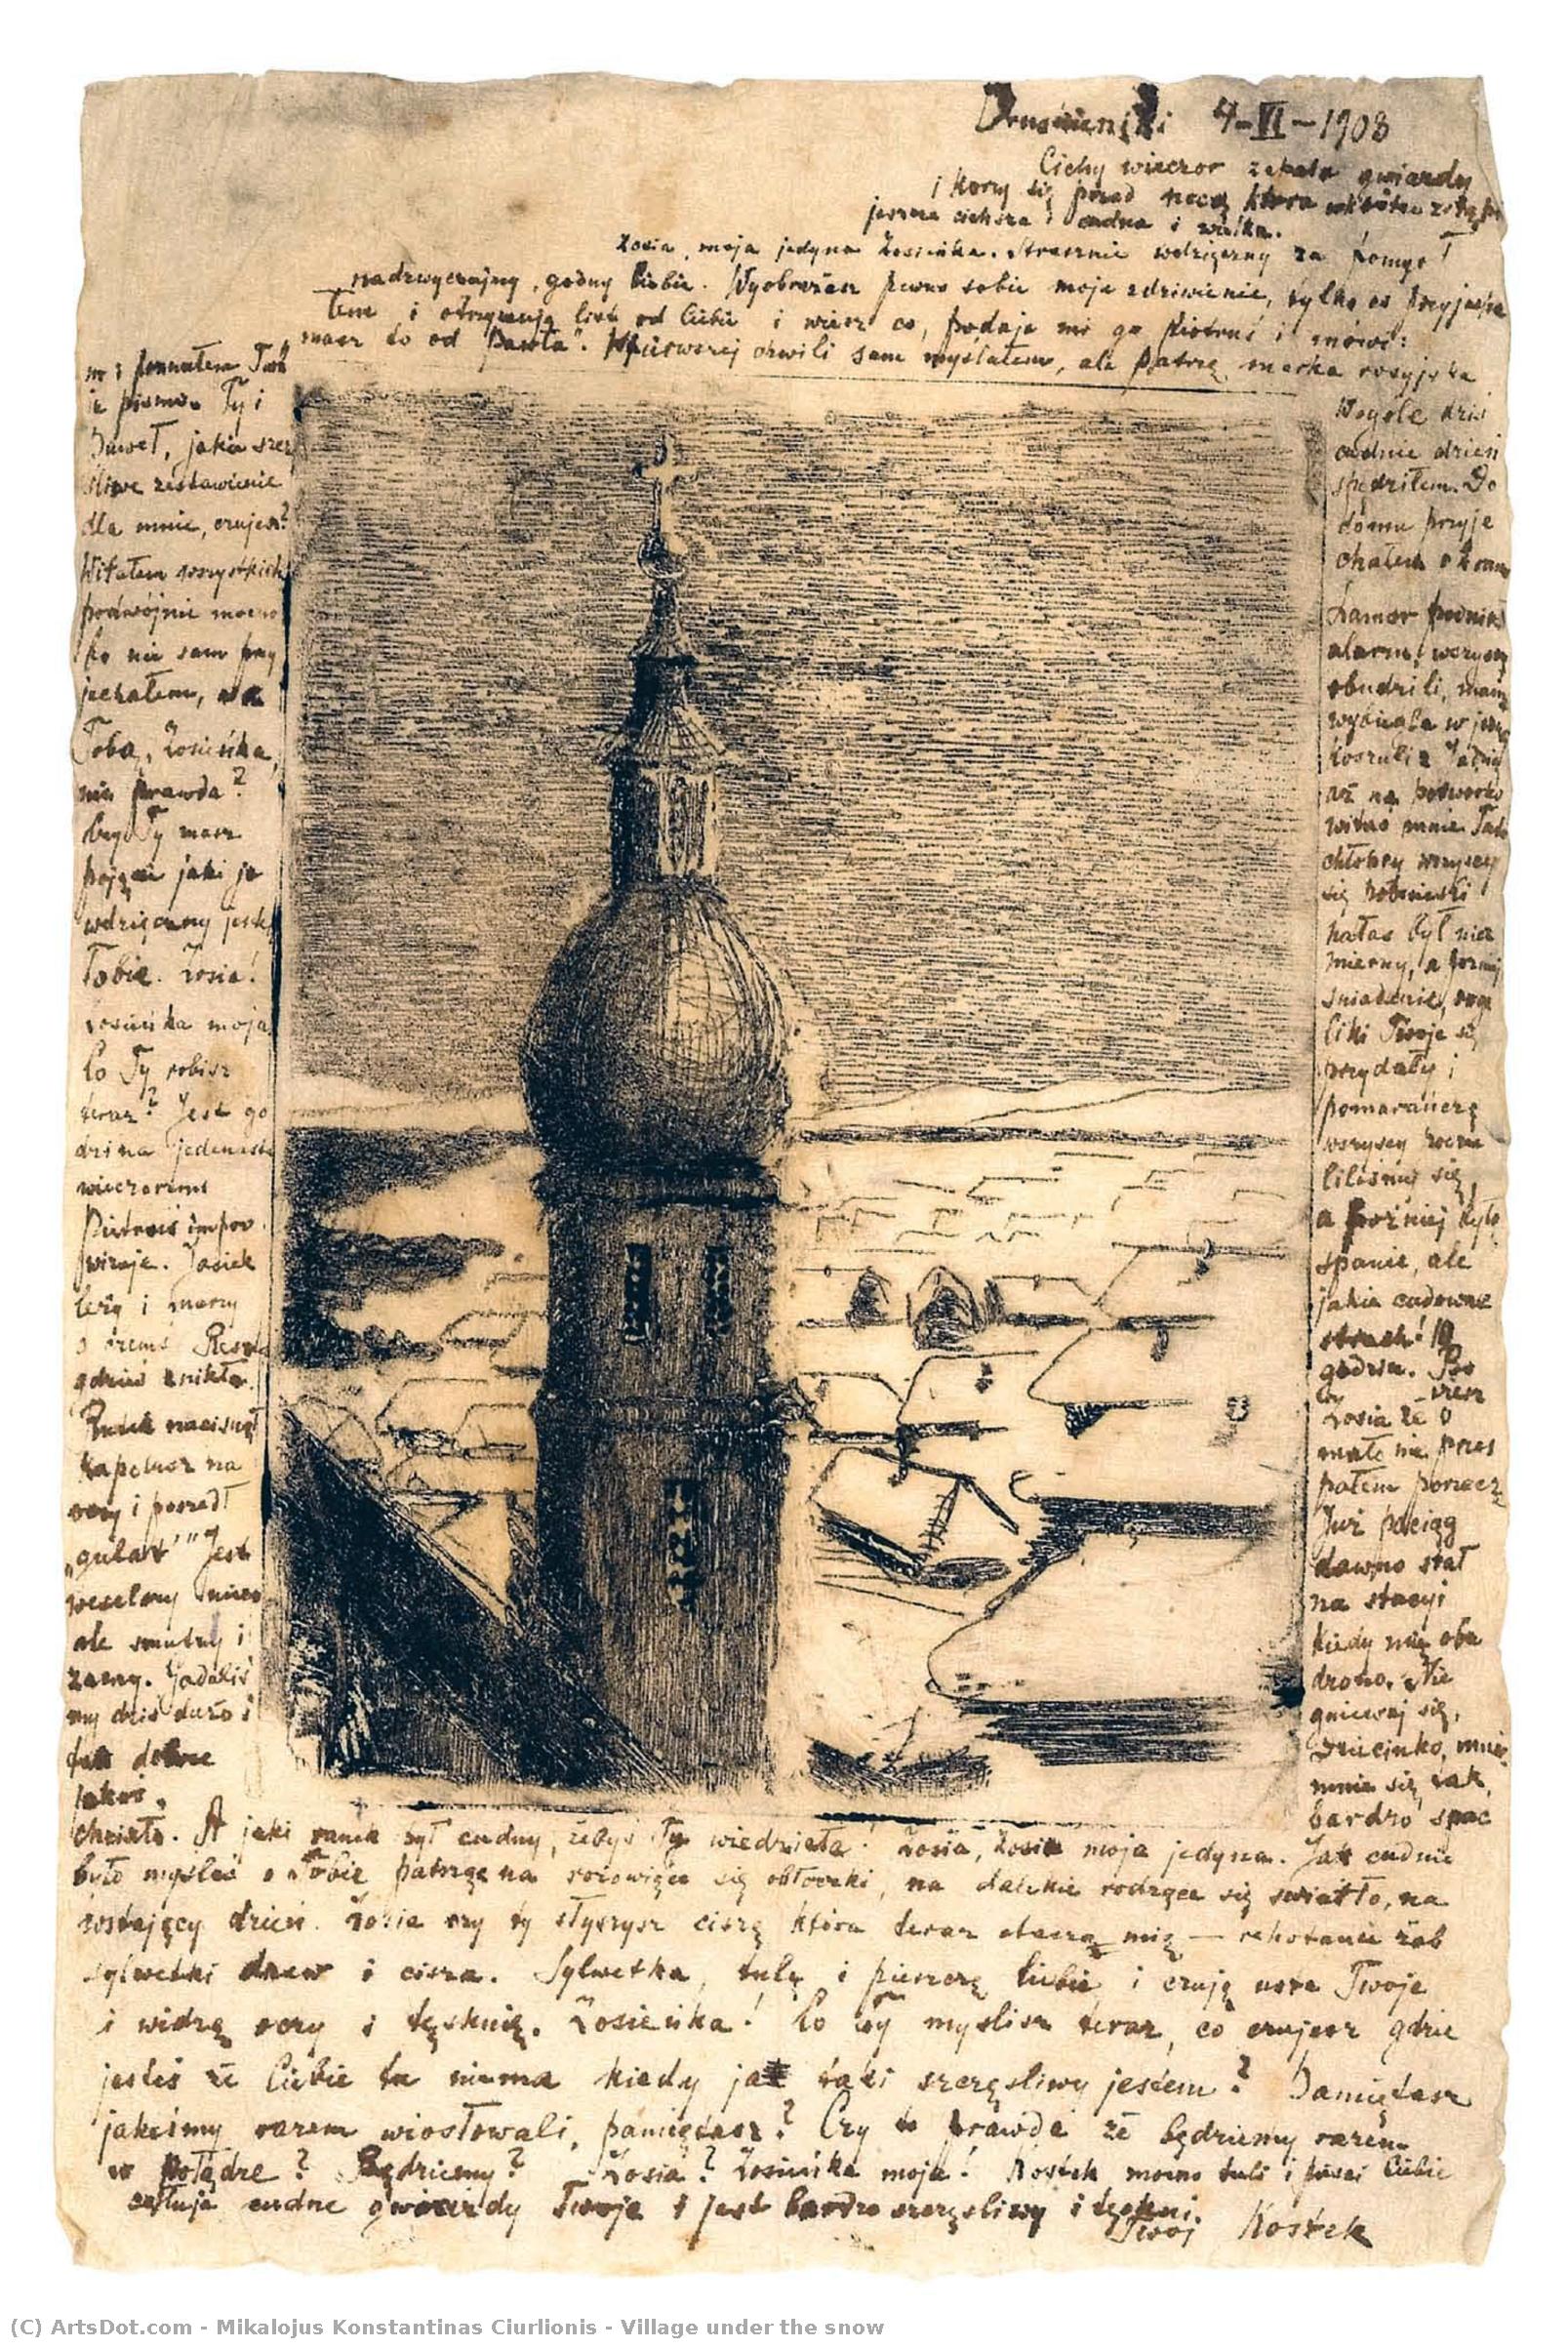 Druskieniki 4-VI-1908
Cichy wieczor zapala gwiazdy
i korzy się przed nocą ktora wkrótce
jeszcze cichsza i cudna i wielka.
Zosia, moja jedyna Zosieńka. Strasznie wdzięczny za pomysł
nadzwyczajny, godny Ciebie. Wyobrażasz pewno sobie moje zdziwienie, tylko co przyjecha
łem i otrzymuję list od Ciebie i wiesz co, podaje mi go Piotruś i mówi:
masz to od "Pawła". W pierwszej chwili sam myślałem, ale patrzę marka rosyjska
no i poznałem Two
je pismo. Ty i
Paweł, jakie szczę
śliwe zestawienie
dla mnie, czujesz?
Witałem wszystkich
podwójnie mocno
bo nie sam przy
jechałem, a z
Tobą, Zosieńka,
nie prawda?
Czy Ty masz
pojęcie jaki ja
wdzięczny jestem
Tobie. Zosia!
Zosieńka moja
Co Ty robisz
teraz? Jest go
dzina jedenasta
wieczorem
Piotruś impro
wizuje. Jasiek
leży i marzy
o czemś Reszta
gdzieś znikła.
nacisnął
kapelusz na
oczy i poszedł
"gulać" Jest
wesoły nieco
ale smutny i
zamy. Gadaliś
my dziś dużo i
tak dobrze
jakoś,
Wogóle dziś
cudnie dzień
spędziłem. Do
domu przyje
chałem
podniósł
alarm, wszyscy
obudzili, mama
wybiegła w jednej
koszuli z Jadzią
aż na podworko
witać mnie Tato
chłopcy wszyscy
się
hałas był nie
mierny, a poźniej
śniadanie, roga
liki Twoje się
przydały i
pomarańcze
wszyscy rozczu
liliśmy się,
a poźniej było
spanie, ale
jakie cudowne
strach! 10
godzin. Bo
Czy wiesz
Zosia że o
mało nie przes
pałem Porzecze
Już pociąg
dawno stał
na stacyi
kiedy mię obu
dzono. Nie
gniewaj się,
Dziecinko, mnie
mnie się tak
bardzo spać
chciało. A jaki ranek był cudny, żebyś Ty wiedziała! Zosia, Zosia moja jedyna. Jak cudnie
było myśleć o Tobie patrząc na rożowiące się obłoczki, na dalekie rodzące się światło, na
powstający dzień. Zosia czy ty słyszysz ciszę która teraz otacza mię — rehotanie żab
sylwetki drzew i cisza. Sylwetka, tulę i pieszczę Ciebie i czuję usta Twoje
i widzę oczy i tęsknię. Zosieńka! Co Ty myślisz teraz, co czujesz gdzie
jesteś że Ciebie tu niema kiedy ja taki szczęśliwy jestem? Pamiętasz
jakeśmy razem wiosłowali, pamiętasz? Czy to prawda że będziemy razem
w Połądze? Będziemy? Zosia? Zosieńka moja! Kostek mocno tuli i pieści Ciebie
całuje cudne gwiazdy Twoje i jest bardzo szczęśliwy i tęskni.
Twoj Kostek
(C) ArtsDot.com - Mikalojus Konstantinas Ciurlionis - Village under the snow